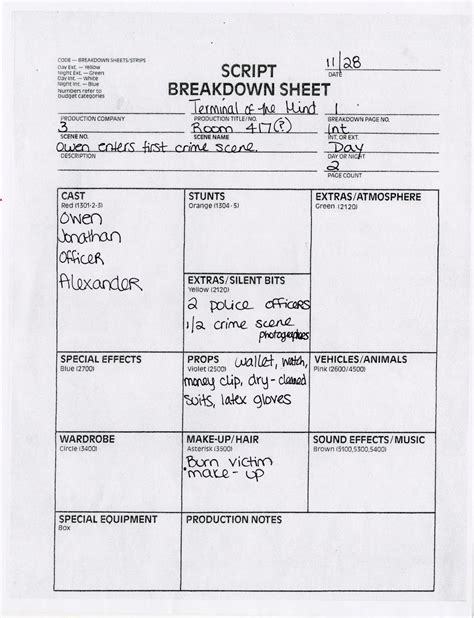 CODE — BREAKDOWN SHEETS/STRIPS
Day Ext. — Yellow
Night Ext. — Green
Day Int. — White
Night Int. — Blue
Numbers refer to
budget categories
SCRIPT
BREAKDOWN SHEET
11/28
DATE
Terminal of the Mind
1
PRODUCTION COMPANY
PRODUCTION TITLE/NO.
BREAKDOWN PAGE NO.
3
Room 417(?)
Int.
SCENE NO.
SCENE NAME
INT. OR EXT.
Owen enters first crime scene.
Day
DESCRIPTION
DAY OR NIGHT
2
PAGE COUNT
CAST
Red (1301-2-3)
Owen
Jonathan
Officer
Alexander
STUNTS
Orange (1304-5)
EXTRAS/ATMOSPHERE
Green (2120)
EXTRAS/SILENT BITS
Yellow (2120)
2 police officers
1/2 crime scene
photographers
SPECIAL EFFECTS
Blue (2700)
PROPS wallet, watch,
Violet (2500)
money clip, dry-cleaned
suits, latex gloves
VEHICLES/ANIMALS
Pink (2600/4500)
WARDROBE
Circle (3400)
MAKE-UP/HAIR
Asterisk (3500)
Burn victim
make-up
SOUND EFFECTS/MUSIC
Brown (5100,5300,5400)
SPECIAL EQUIPMENT
Box
PRODUCTION NOTES